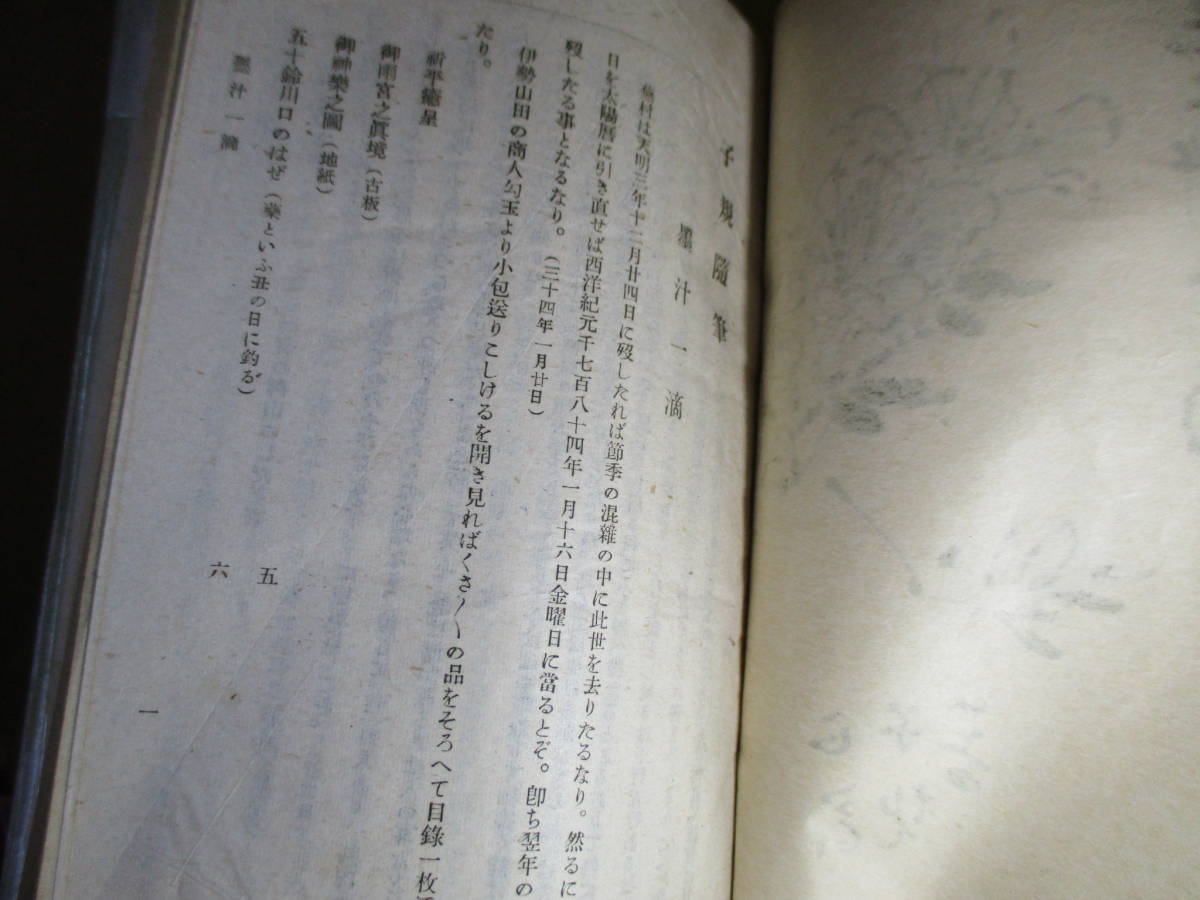 子規隨筆
墨汁一滴
蕪村は天明三年十二月廿四日に歿したれば節季の混雜の中に此世を去りたるなり。然るに
日を太陽曆に引き直せば西洋紀元千七百八十四年一月十六日金曜日に當るとぞ。卽ち翌年の
歿したる事となるなり。(三十四年一月廿日)
伊勢山田の商人勾玉より小包送りこしけるを開き見ればくさ〴〵の品をそろへて目錄一枚
たり。
祈平癒呈
御雨宮之眞境(古板)
御神樂之圖(地紙)
五十鈴川口のはぜ(藥といふ丑の日に釣る)
五
六
墨汁一滴
一